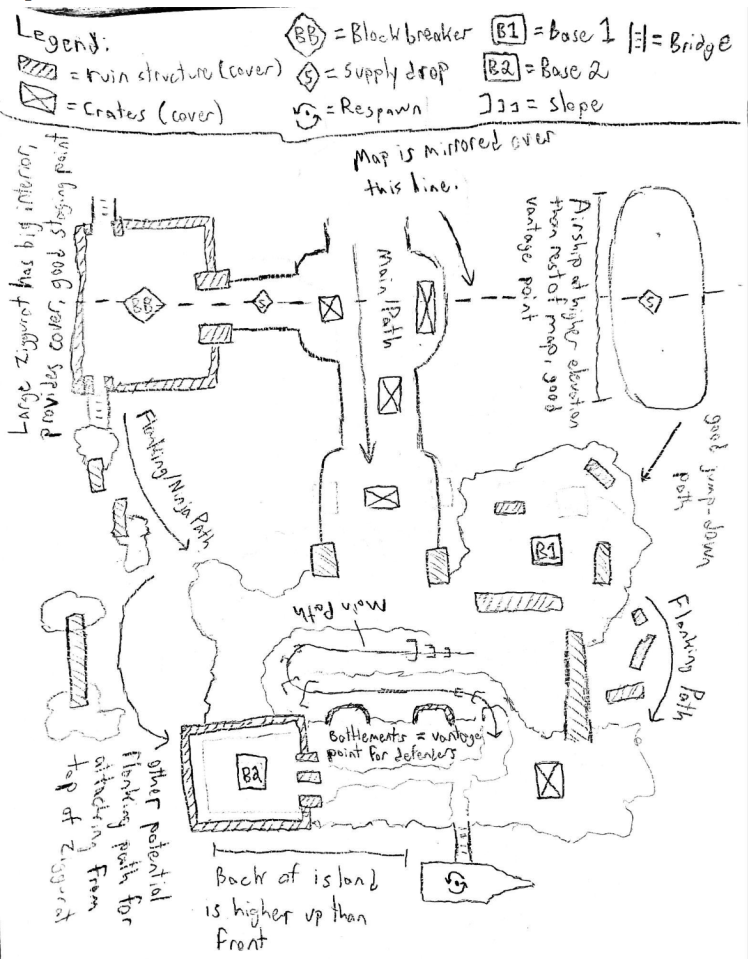 Legend:
BB = Blockbreaker
B1 = Base 1
= Bridge
= ruin structure (cover)
S = Supply drop
B2 = Base 2
= Crates (cover)
= Respawn
= slope
Map is mirrored over
this line.
Large Ziggurat has big interior,
provides cover, good staging point
BB
S
Main Path
Airship at higher elevation
than rest of map, good
vantage point
S
Flanking/Ninja Path
good jump-down
path
B1
Flanking Path
Main Path
Battlements = vantage
point for defenders
B2
other potential
flanking path for
attacking from
top of Ziggurat
Back of island
is higher up than
front